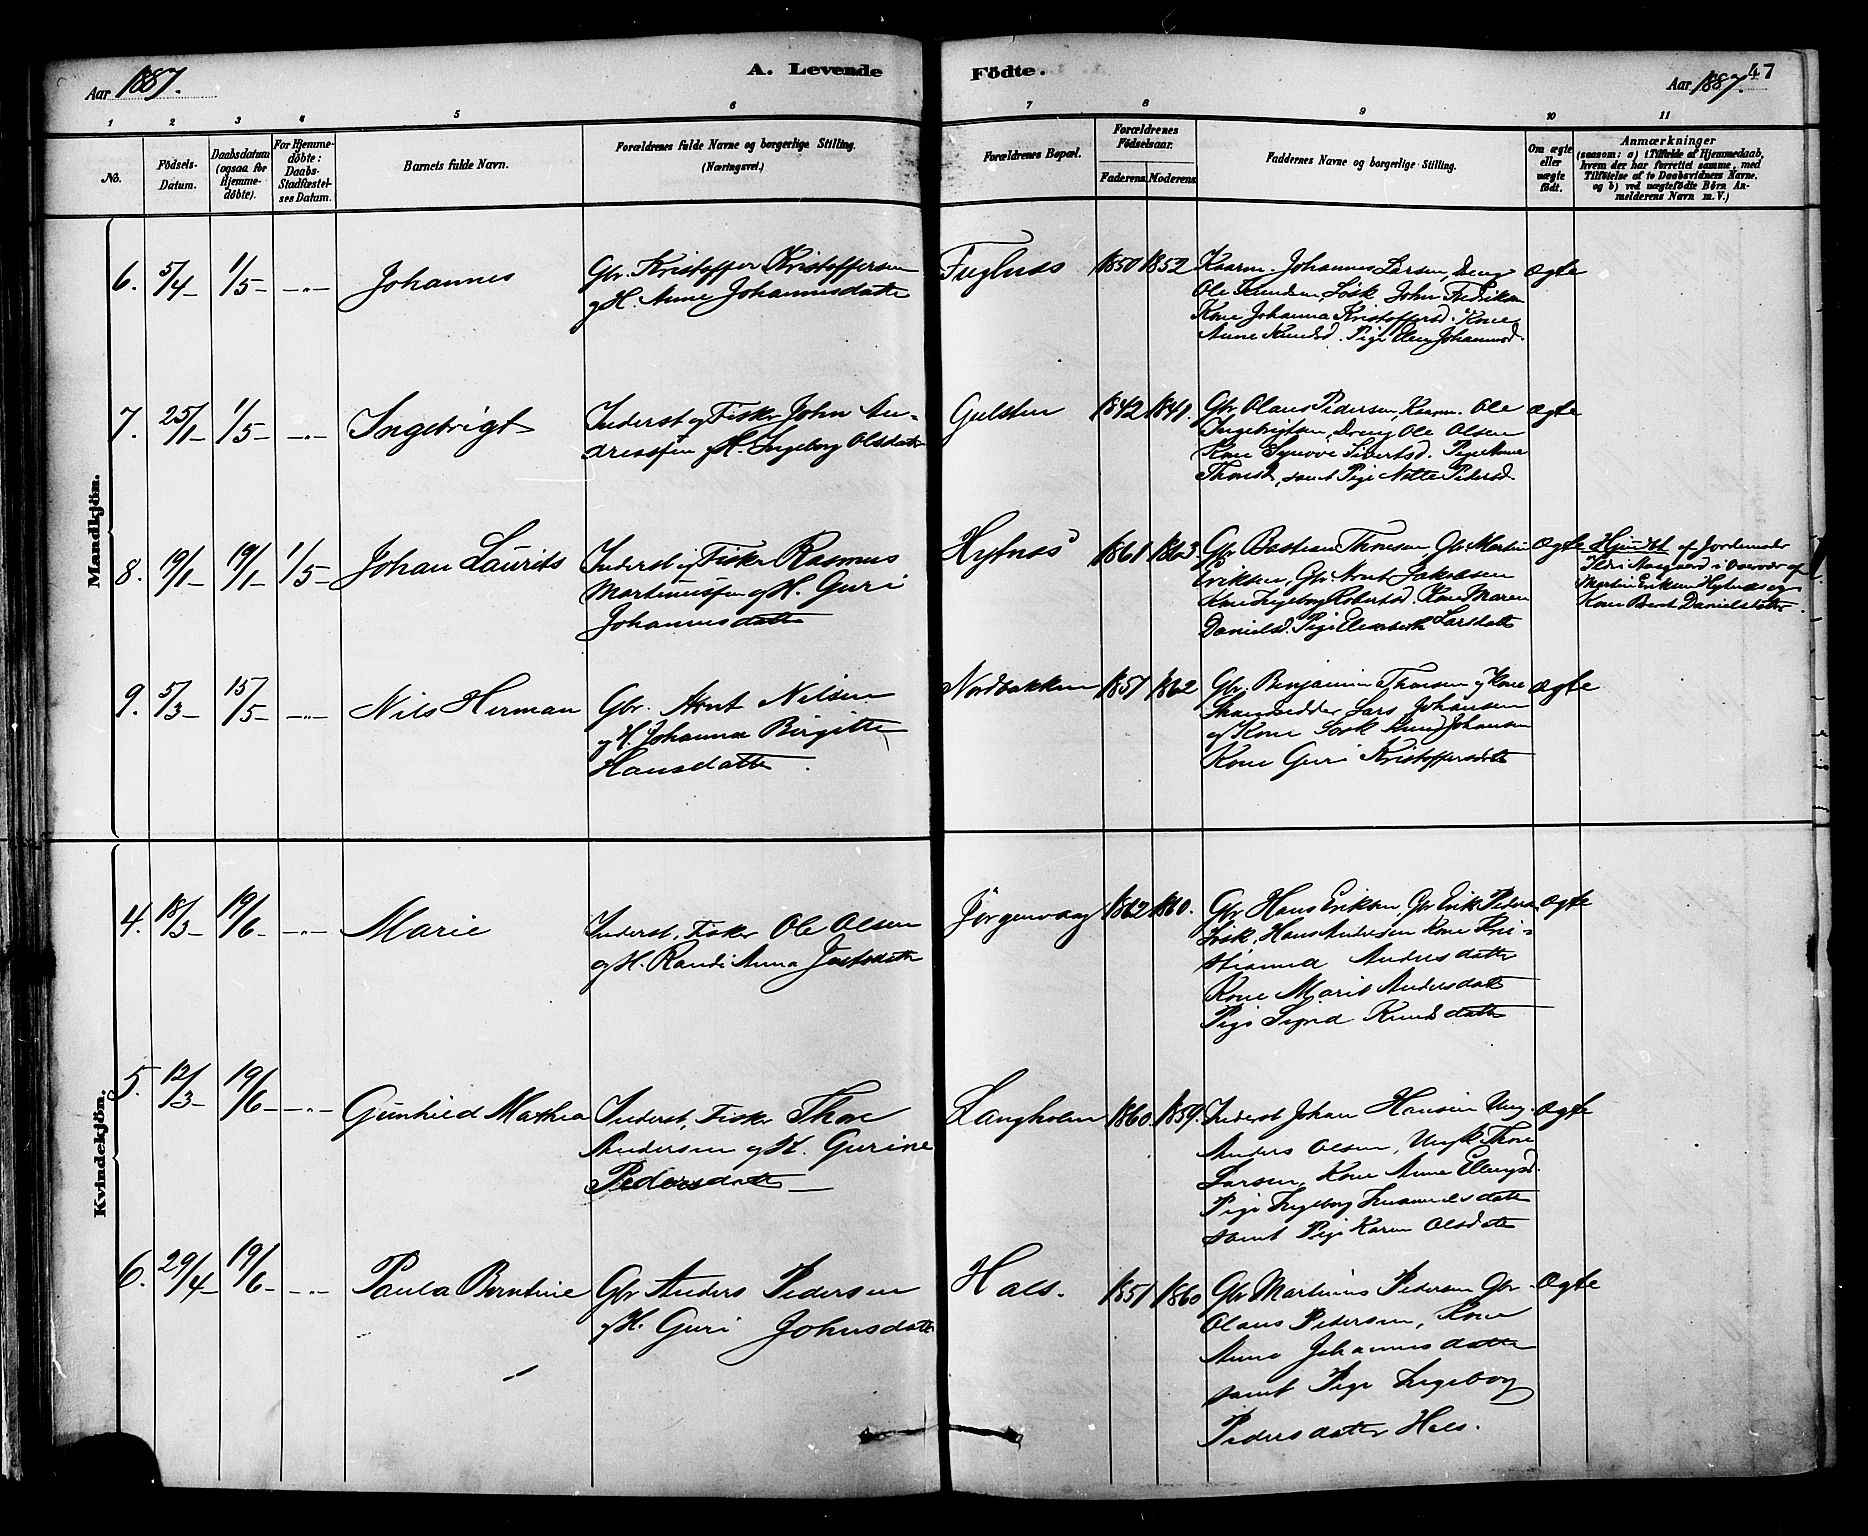 Aar 1887.
A. Levende Födte.
Aar 1887.
47
1 2 3 4 5 6 7 8 9 10 11
No.
Födsels-
Datum.
Daabsdatum
(ogsaa for
Hjemme-
döbte).
For Hjemme-
döbte:
Daabs-
Stadfæstel-
ses Datum.
Barnets fulde Navn.
Forældrenes fulde Navne og borgerlige Stilling.
(Næringsvei.)
Forældrenes Bopæl.
Forældrenes
Födselsaar.
Faderens. Moderens.
Faddernes Navne og borgerlige Stilling.
Om ægte
eller
uægte
födt.
Anmærkninger
(saasom: a) i Tilfælde af Hjemmedaab,
hvem der har forrettet samme, med
Tilföielse af to Daabsvidners Navne,
og b) ved uægtefödte Börn An-
melderens Navn m. V.)
Mandkjön.
6. 5/4 1/5 -„- Johannes
Gbr. Kristoffer Kristoffersen
og H. Anne Johannesdatter
Fuglnæs 1850 1852
Kaarm. Johannes Larsen, Dreng
Ole Knudsen, Løsk John Fredriksen
Kone Johanna Kristoffersd. Kone
Anne Knudsd. Pige Johannesd.
Ægte
7. 25/1 1/5 -„- Ingebrigt
Inderst og Fisker John An-
dreassen og H. Ingeborg Olsdatter
Gulsten 1842 1841.
Gbr Olaus Pedersen, Kaarm. Ole
Ingebrigtsen, Dreng Ole Olsen
Kone Synöve Sivertsd. Pige Ane
Thorsd, samt Pige Pedersd
Ægte
8. 19/1 19/1 1/5 Johan Laurits
Inderst og Fisker Rasmus
Martinussen og H. Guri
Johannesdatter
Hylnæs 1861 1863.
Gbr Bastian Thoresen Gbr Martin
Eriksen, Gbr Arnt Jakobsen
Kone Ingeborg Robertsd. Kone Maren
Danielsd. Pige Elisabeth Larsdatter
Ægte
Hjemdøbt af Jordemoder
Aasgaard i Overvær af
Martin Eriksen Hylnæs og
Kone Berit Danielsdatter.
9. 5/3 15/5 -„- Nils Herman
Gbr. Arnt Nilsen
og H. Johanna Birgitte
Hansdatter.
Nordbakken 1851 1862
Gbr Benjamin Thoresen og Kone
Lars Johansen
og Kone Løsk Knud Johansen
Kone Guri Kristoffersdatter
Ægte
Kvindekjön.
4. 18/3 19/6 -„- Marie
Inderst, Fisker Ole Olsen
og H. Randi Anna
Jörgenvaag 1862 1860.
Gbr Hans Eriksen, Gbr Erik Pedersen
Løsk, Hans Andresen Kone Kri-
stianna Andersdatter
Kone Marit Andersdatter
Pige Sigrid Knudsdatter
Ægte
5. 12/3 19/6 -„- Gunhild Mathea
Inderst, Fisker Thore
Andersen og H. Gurine
Pedersdatter
Langholen 1860. 1859.
Inderst Johan Hansen Ung.
Anders Olsen, Ungk Thore
Larsen, Kone Anne Ellingsd.
Pige Ingeborg
samt Pige Karen Olsdatter
Ægte
6. 29/4 19/6 -„- Paula Berntine
Gbr Anders Pedersen
og H. Guri Johnsdatter
Hals. 1851 1860
Gbr Martinus Pedersen Gbr.
Olaus Pedersen, Kone
Anne Johannesdatter
samt Pige Ingeborg
Pedersdatter Hals.
Ægte